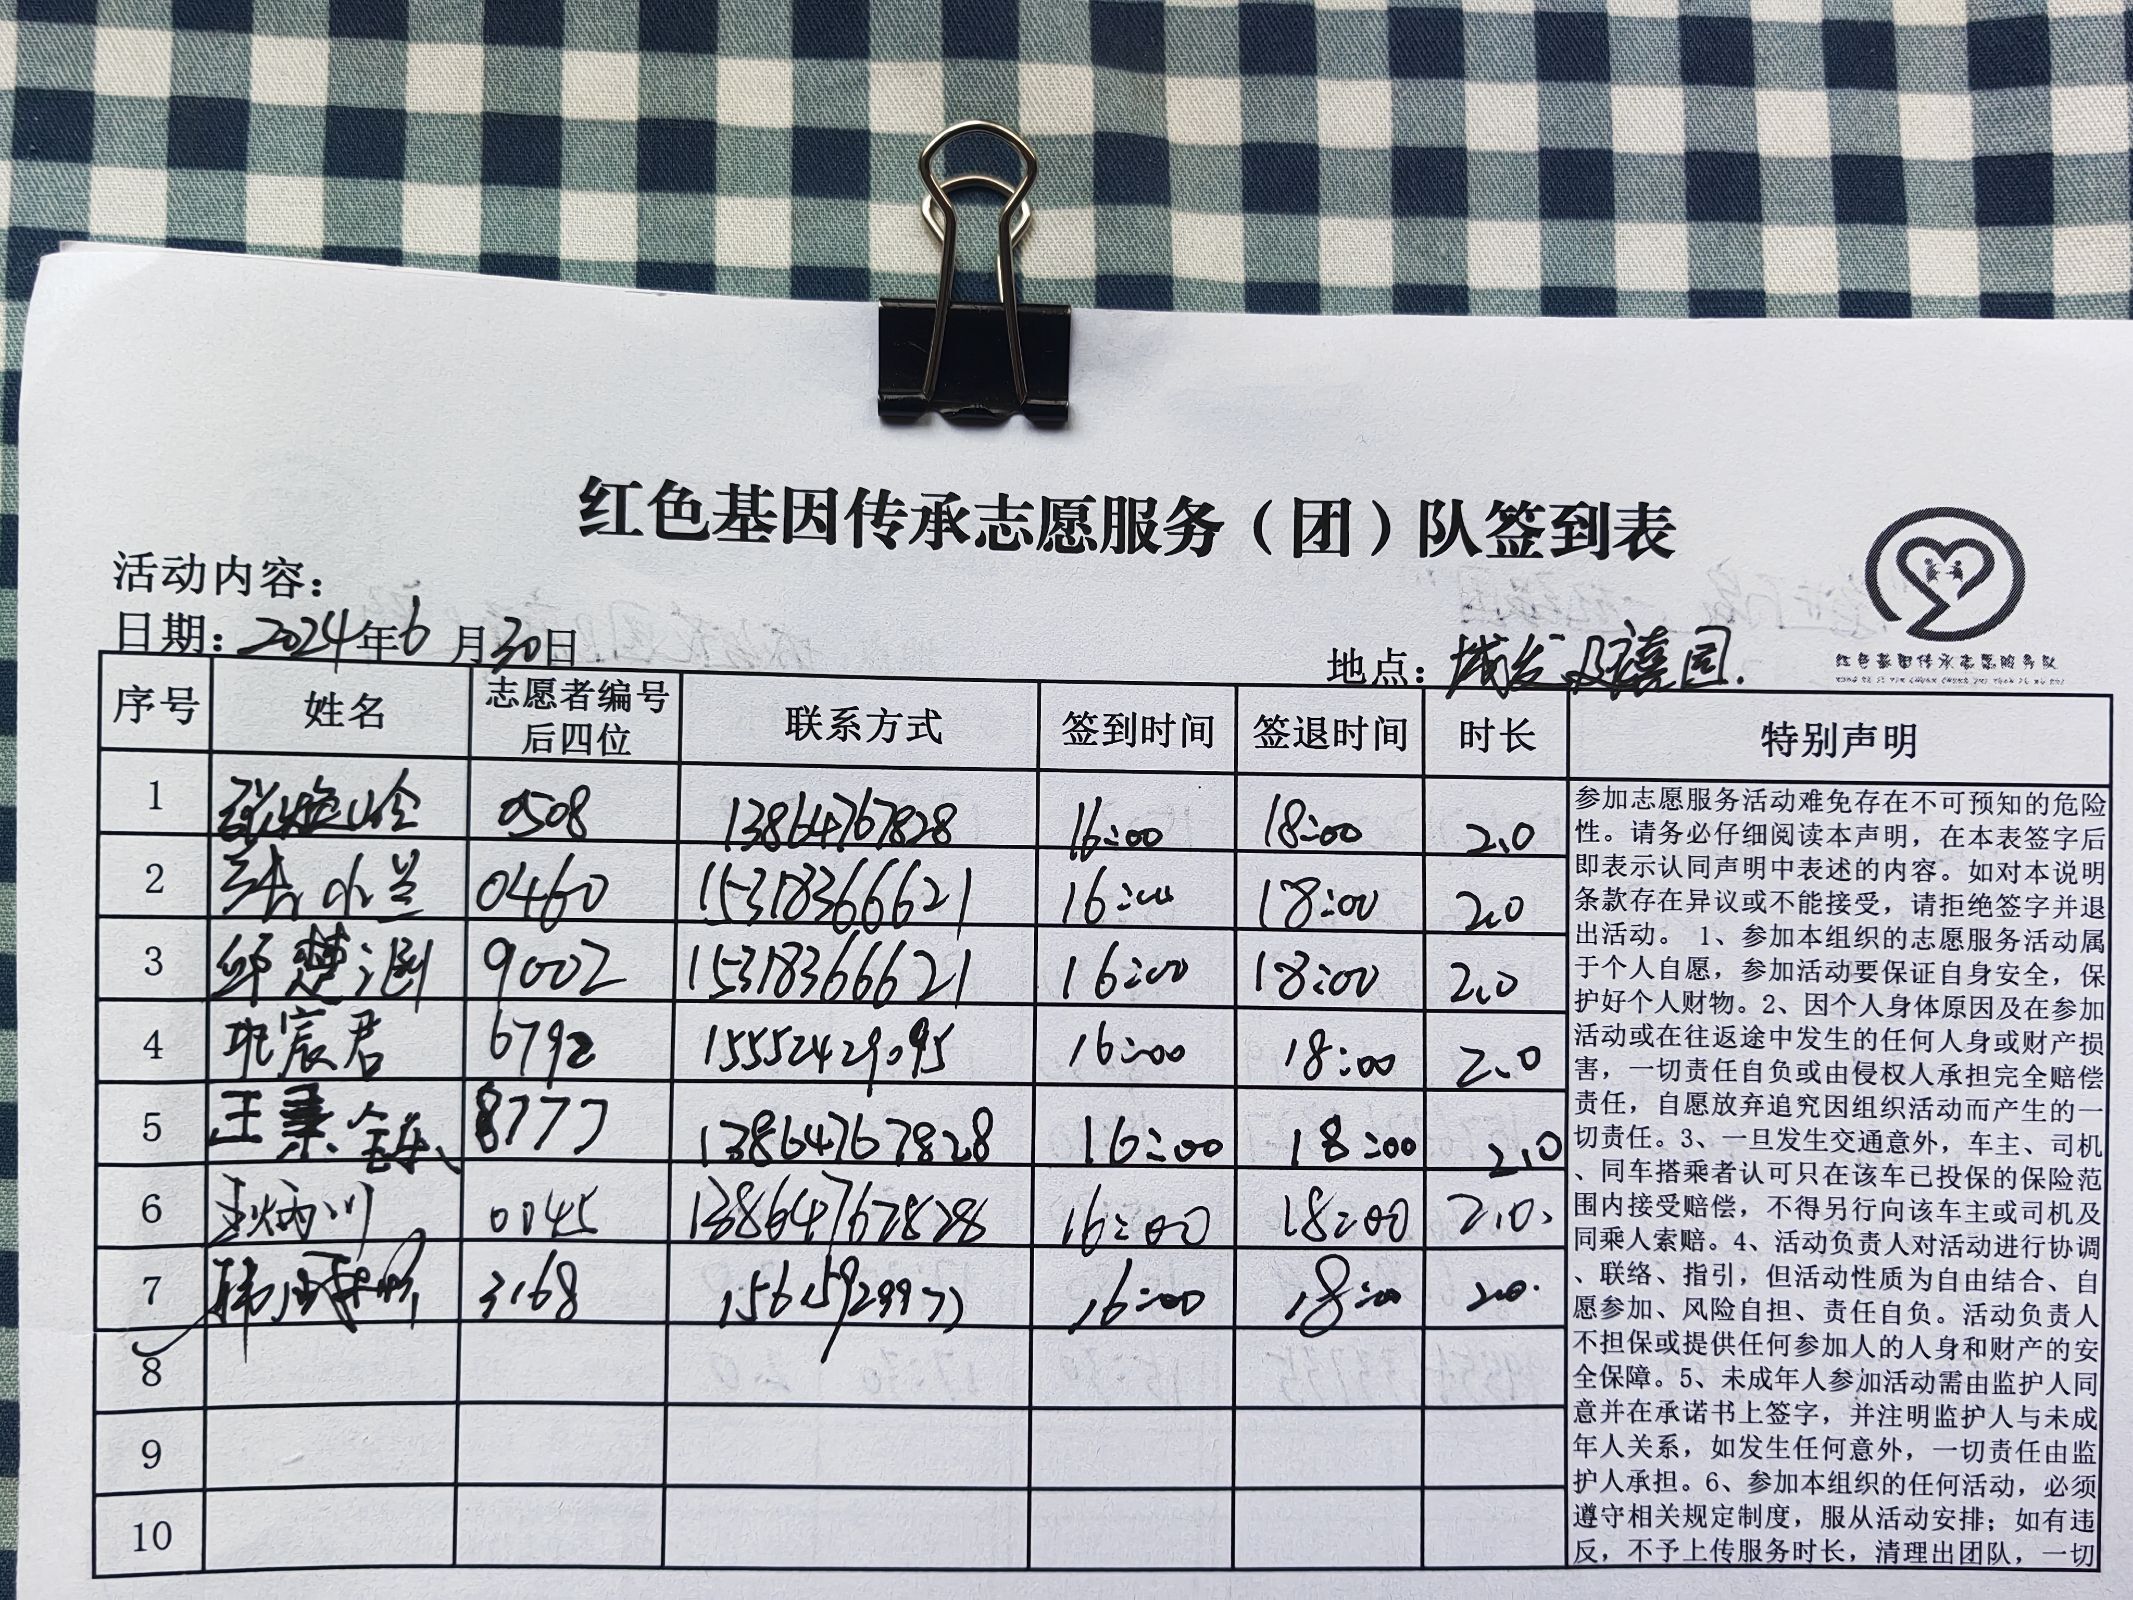 红色基因传承志愿服务（团）队签到表
活动内容：
日期：2024年6月30日
地点：城发 园.
红色基因传承志愿服务队
序号 姓名 志愿者编号后四位 联系方式 签到时间 签退时间 时长 特别声明
1 0508 13864767828 16:00 18:00 2.0
2 小兰 0460 15318366621 16:00 18:00 2.0
3 邱楚 9002 15318366621 16:00 18:00 2.0
4 宸君 6792 15552429095 16:00 18:00 2.0
5 王 8777 13864767828 16:00 18:00 2.0
6 王炳川 0045 13864767828 16:00 18:00 2.0.
7 韩 3168 16:00 18:00 2.0.
8
9
10
参加志愿服务活动难免存在不可预知的危险
性。请务必仔细阅读本声明，在本表签字后
即表示认同声明中表述的内容。如对本说明
条款存在异议或不能接受，请拒绝签字并退
出活动。 1、参加本组织的志愿服务活动属
于个人自愿，参加活动要保证自身安全，保
护好个人财物。2、因个人身体原因及在参加
活动或在往返途中发生的任何人身或财产损
害，一切责任自负或由侵权人承担完全赔偿
责任，自愿放弃追究因组织活动而产生的一
切责任。3、一旦发生交通意外，车主、司机
、同车搭乘者认可只在该车已投保的保险范
围内接受赔偿，不得另行向该车主或司机及
同乘人索赔。4、活动负责人对活动进行协调
、联络、指引，但活动性质为自由结合、自
愿参加、风险自担、责任自负。活动负责人
不担保或提供任何参加人的人身和财产的安
全保障。5、未成年人参加活动需由监护人同
意并在承诺书上签字，并注明监护人与未成
年人关系，如发生任何意外，一切责任由监
护人承担。6、参加本组织的任何活动，必须
遵守相关规定制度，服从活动安排；如有违
反，不予上传服务时长，清理出团队，一切